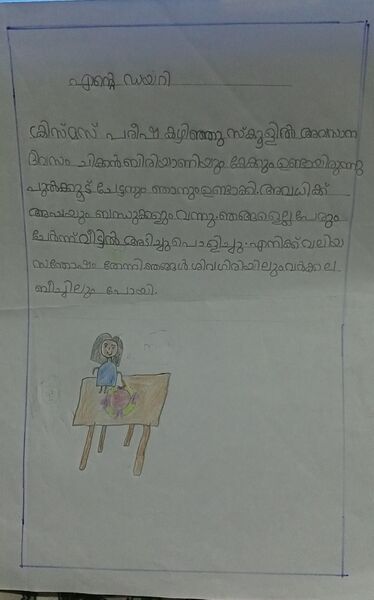 എന്റെ ഡയറി
ക്രിസ്മസ് പരീക്ഷ കഴിഞ്ഞു സ്കൂളിൽ അവസാന
ദിവസം ചിക്കൻ ബിരിയാണിയും കേക്കും ഉണ്ടായിരുന്നു
പുൽക്കൂട് ചേട്ടനും ഞാനും ഉണ്ടാക്കി. അവധിക്ക്
ബന്ധുക്കളും വന്നു. ഞങ്ങളെല്ല പേരും
ചേർന്ന് വീട്ടിൽ അടിച്ചു പൊളിച്ചു. എനിക്ക് വലിയ
സന്തോഷം തോന്നി. ഞങ്ങൾ ശിവഗിരിയിലും വർക്കല
ബീച്ചിലും പോയി.